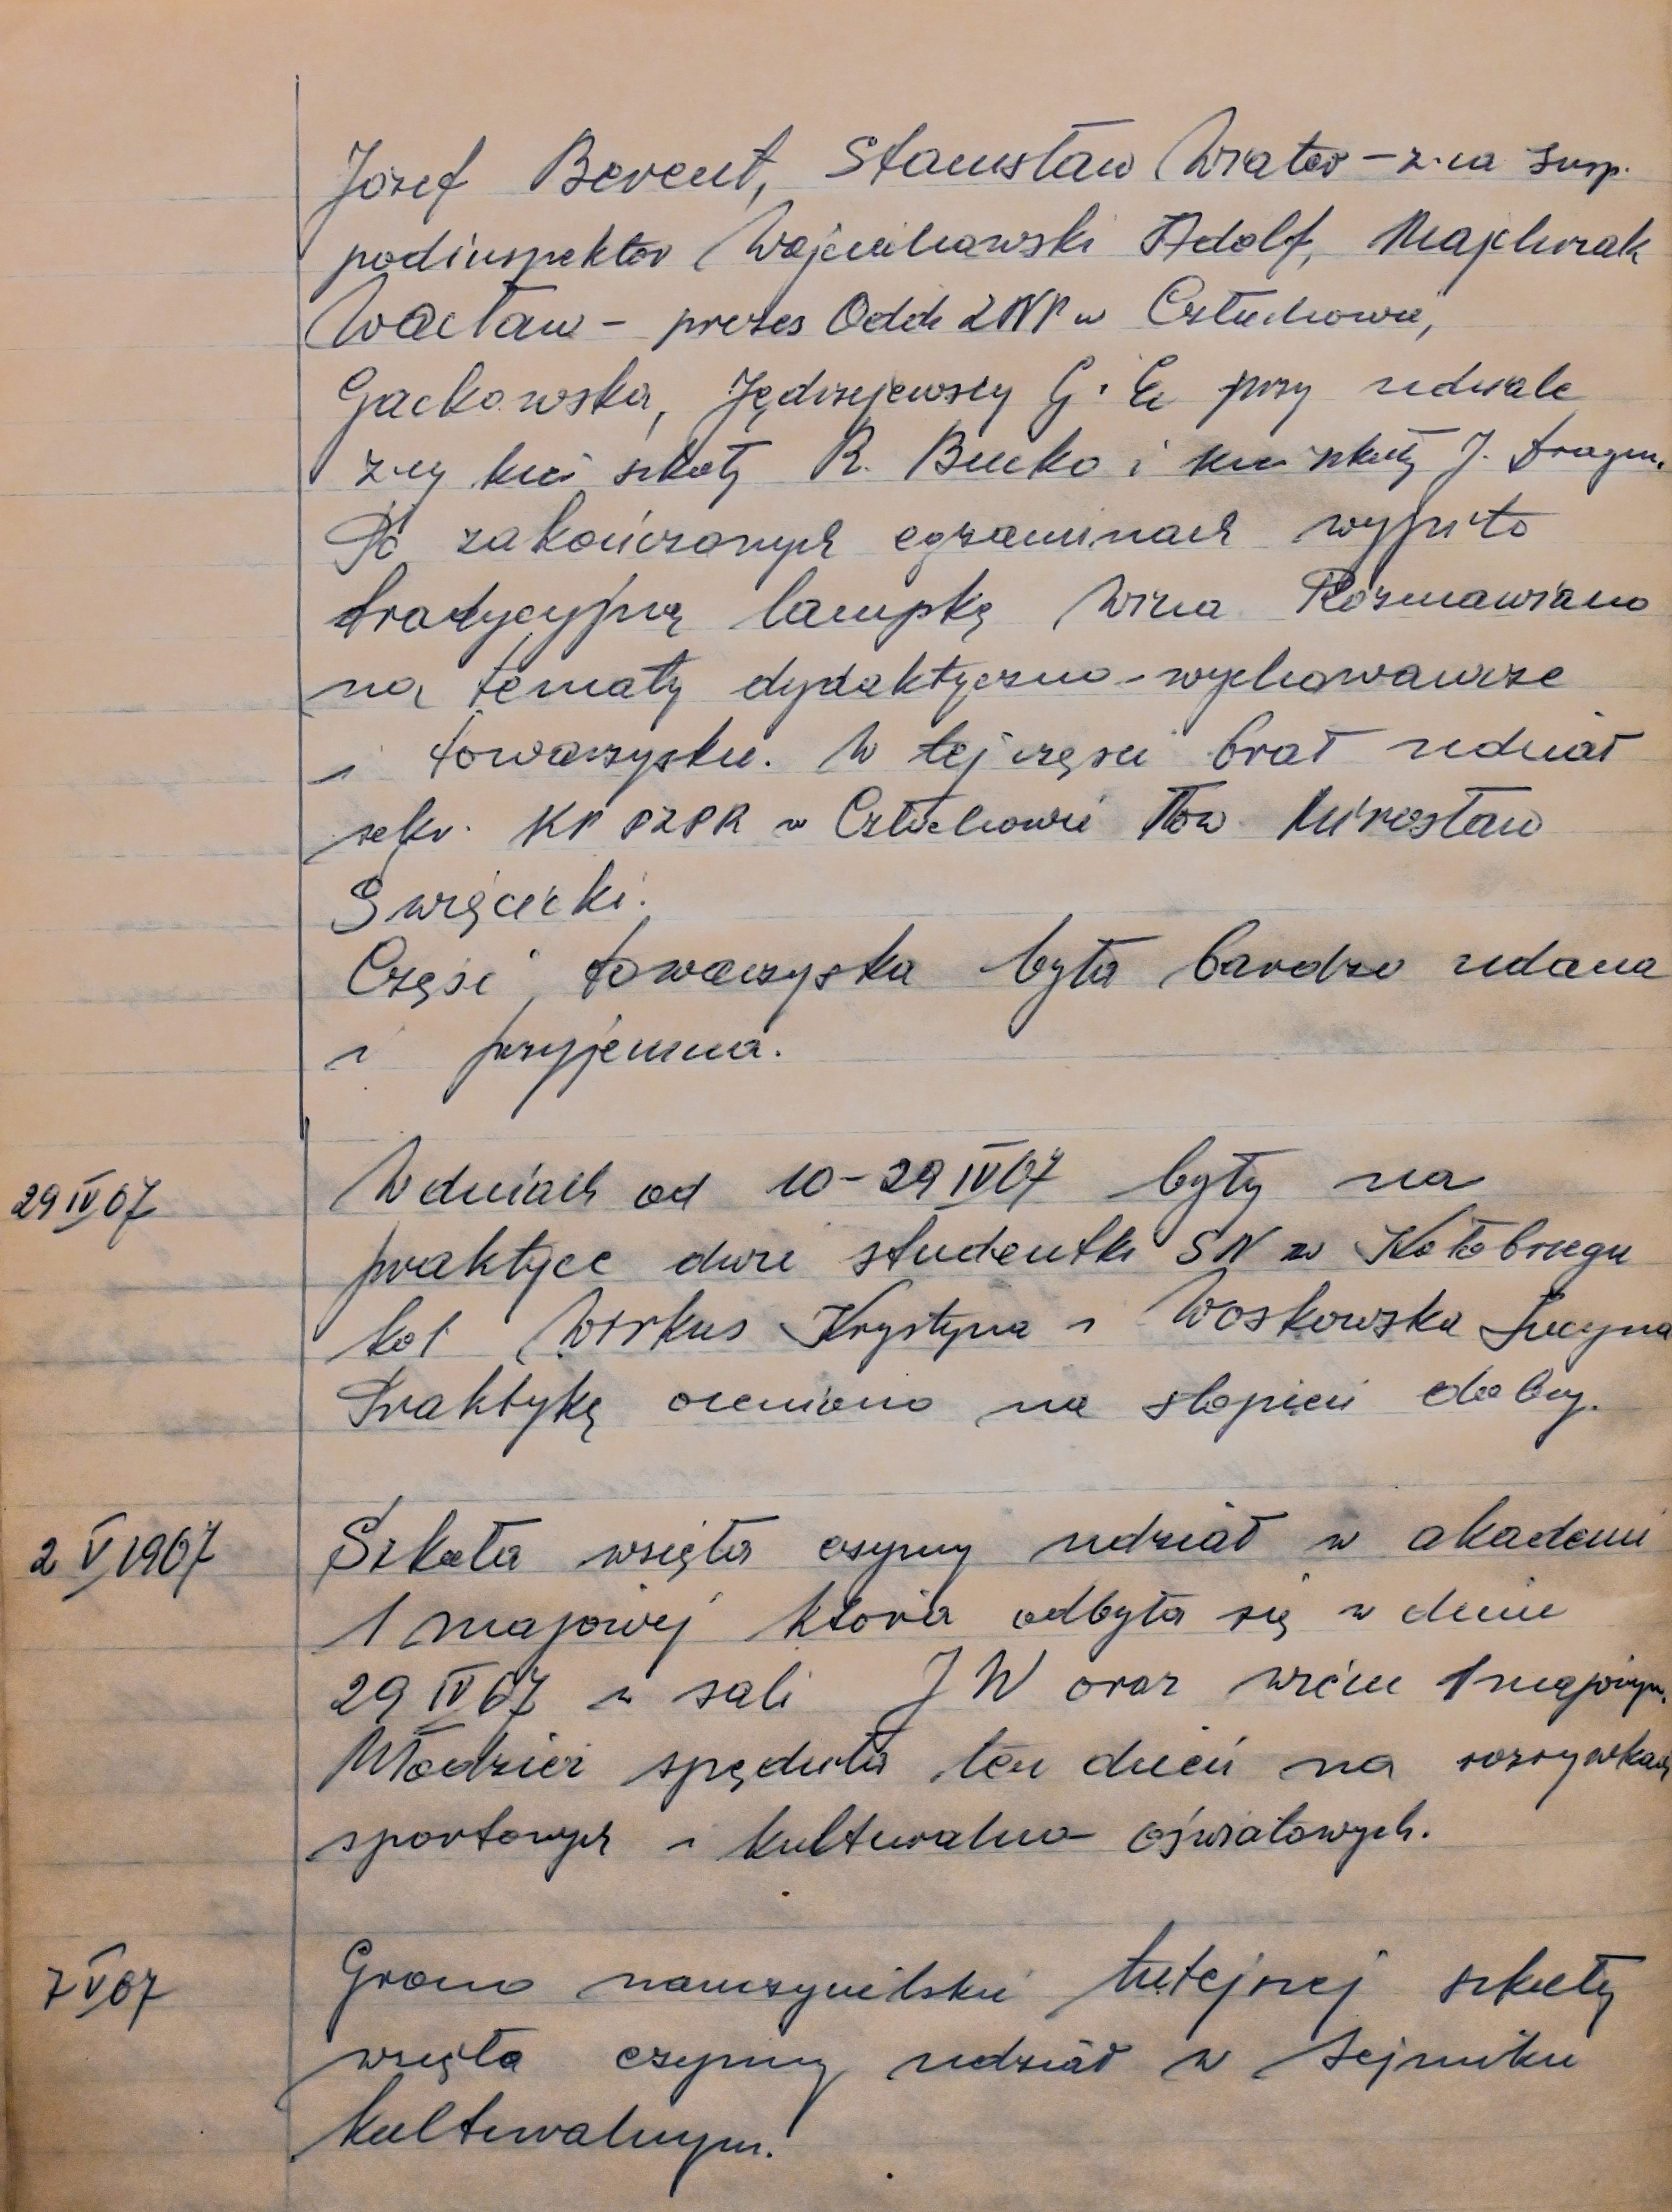 Józef Berent, Stanisław Wiater – z-ca insp.
podinspektor Wojciechowski Adolf, Majchrzak
Wacław – prezes Oddz ZNP w Człuchowie,
Gackowska, Jędrzejewscy G. i E. przy udziale
z-cy kier szkoły R. Bucko i kier szkoły J. Dragun.
Po zakończonych egzaminach wypito
tradycyjną lampkę wina. Rozmawiano
na tematy dydaktyczno-wychowawcze
i towarzyskie. W tej części brał udział
sekr. KP PZPR w Człuchowie Tow. Mirosław
Święcicki.
Część towarzyska była bardzo udana
i przyjemna.
29 IV 67 W dniach od 10–29 IV 67 były na
praktyce dwie studentki SN w Kołobrzegu
kol Wirkus Krystyna i Woskowska Lucyna
Praktykę oceniono na stopień dobry.
2 V 1967 Szkoła wzięła czynny udział w akademii
1 majowej która odbyła się w dniu
29 IV 67 w sali JW oraz wiecu 1 majowym.
Młodzież spędziła ten dzień na rozrywkach
sportowych i kulturalno-oświatowych.
7 V 67 Grono nauczycielskie tutejszej szkoły
wzięło czynny udział w Sejmiku
kulturalnym.